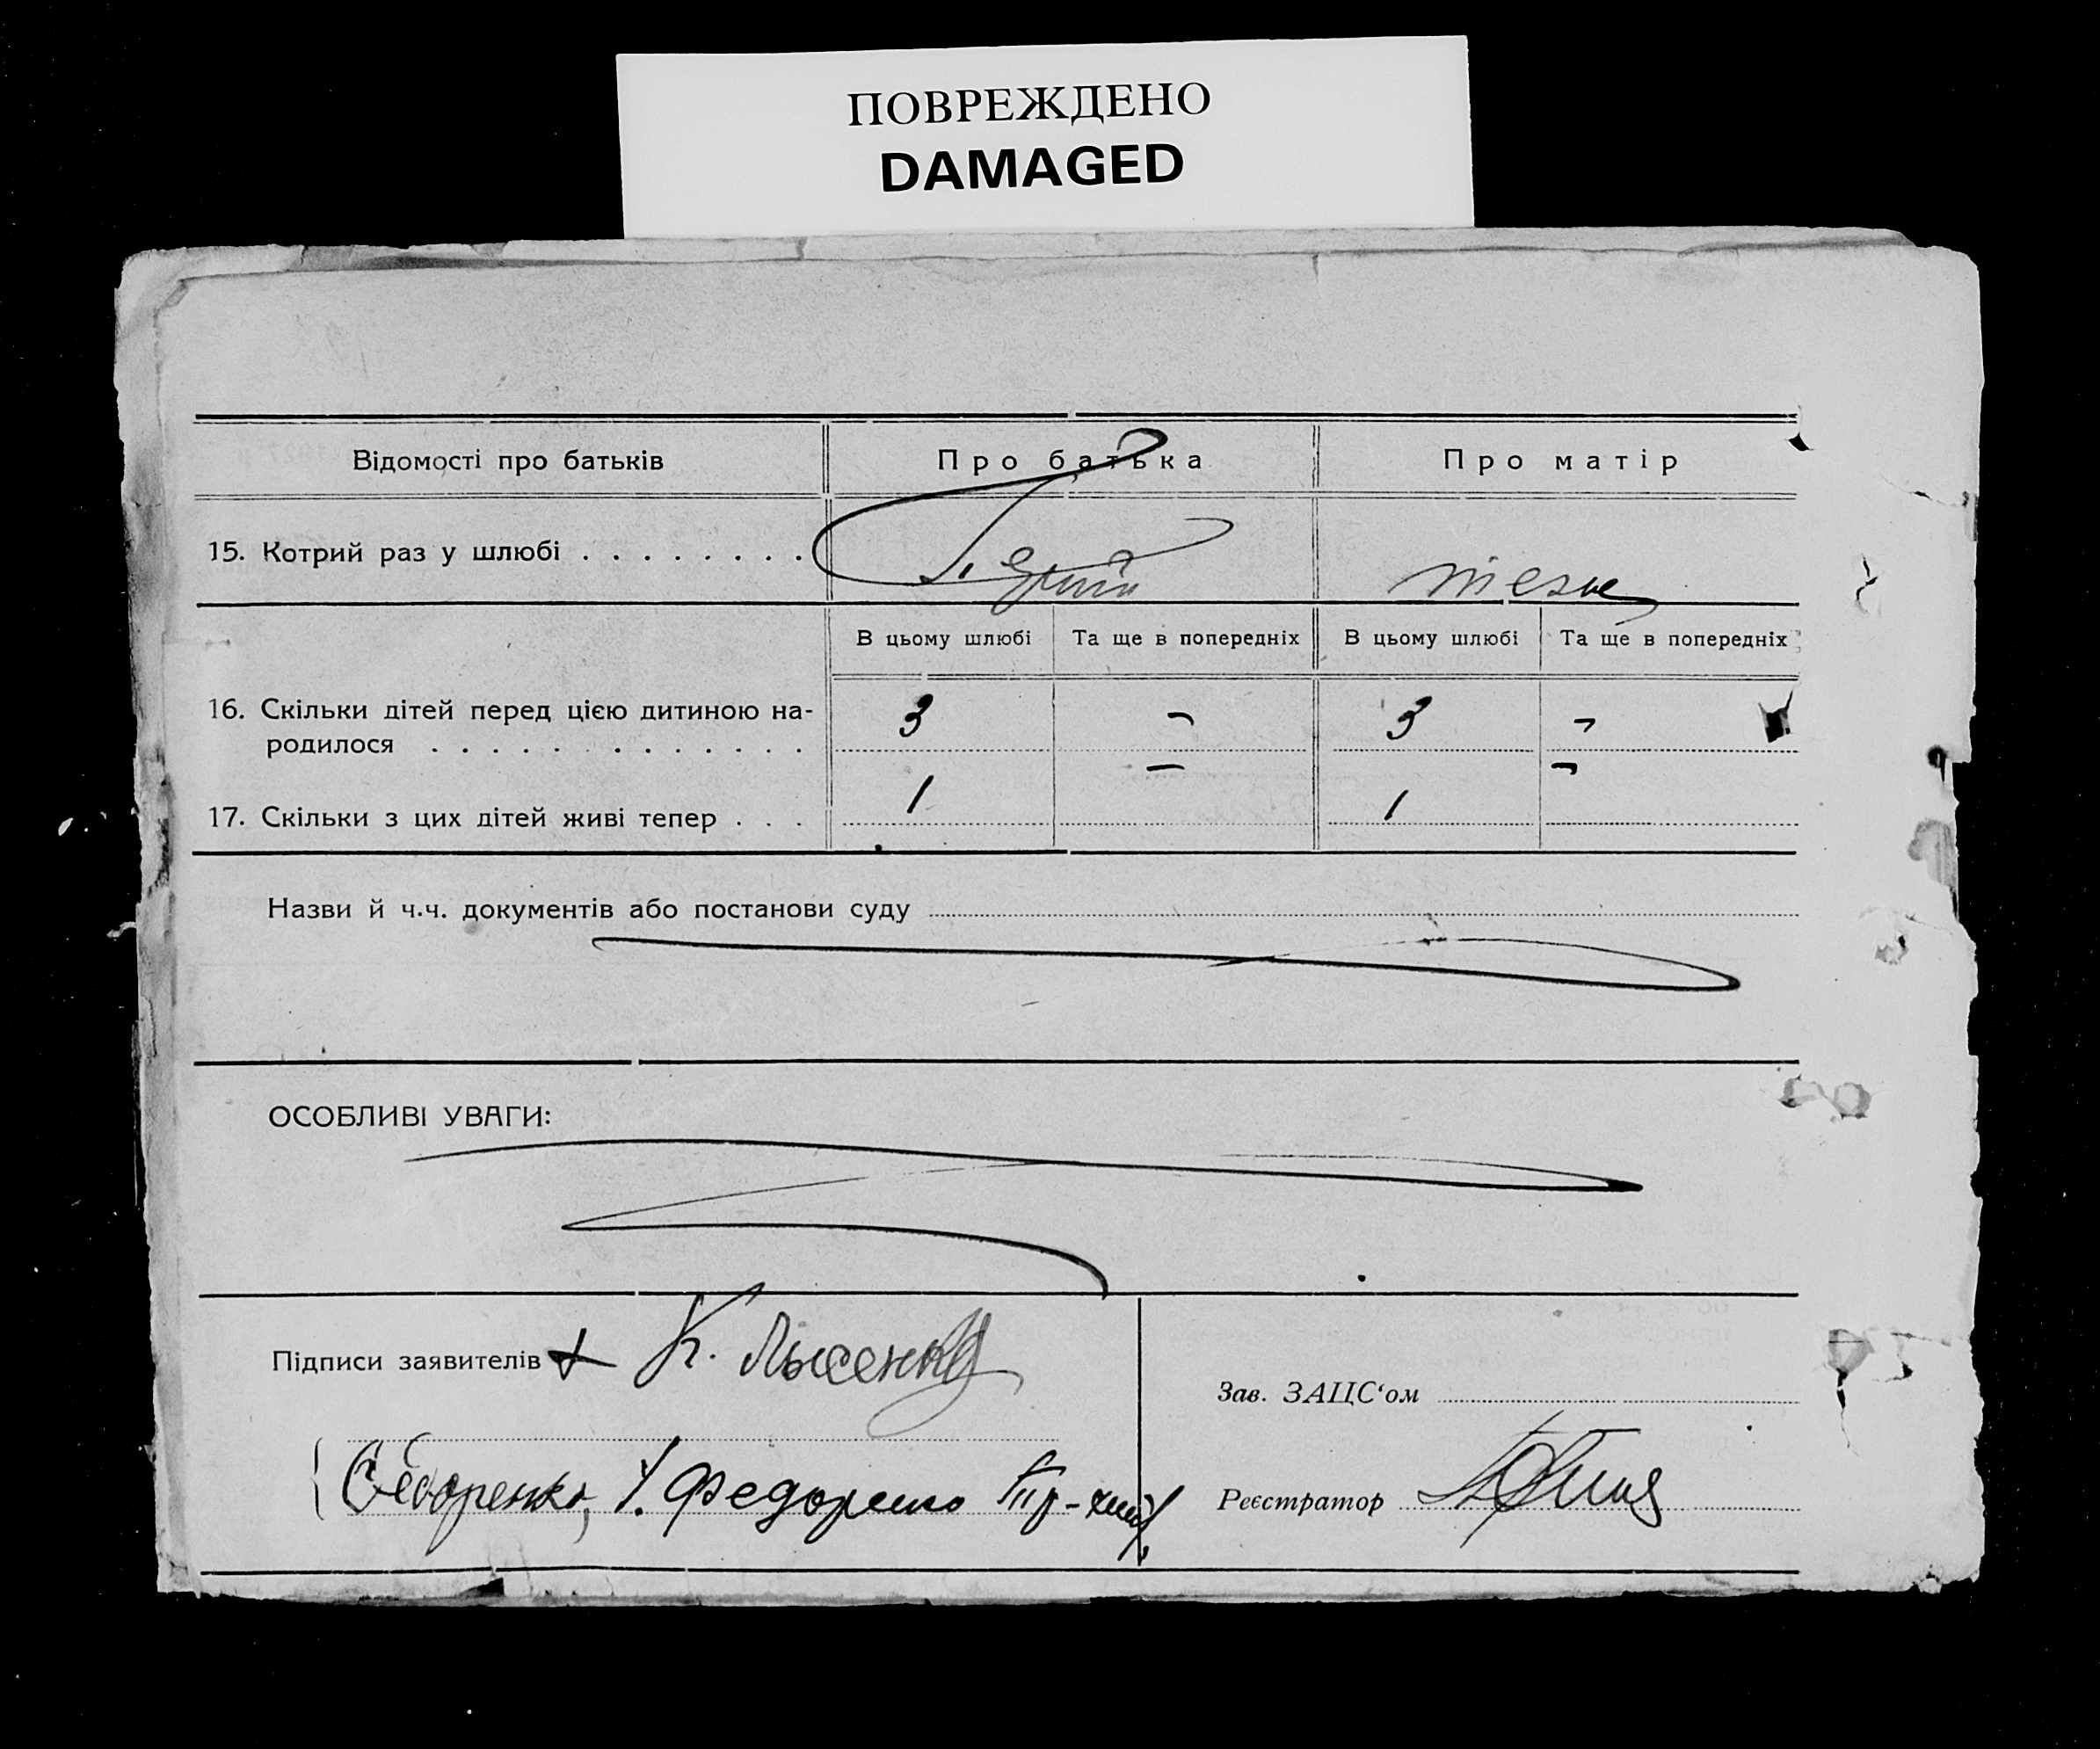 ПОВРЕЖДЕНО
DAMAGED
Відомості про батьків Про батька Про матір
15. Котрий раз у шлюбі . . . . . . . .
В цьому шлюбі Та ще в попередніх В цьому шлюбі Та ще в попередніх
16. Скільки дітей перед цією дитиною на-
родилося . . . . . . . . . . . . . 3 – 3 –
17. Скільки з цих дітей живі тепер . . . 1 – 1 –
Назви й ч.ч. документів або постанови суду
ОСОБЛИВІ УВАГИ:
Підписи заявителів К. Лысенко
Зав. ЗАЦС‘ом
Федоренко
Реєстратор